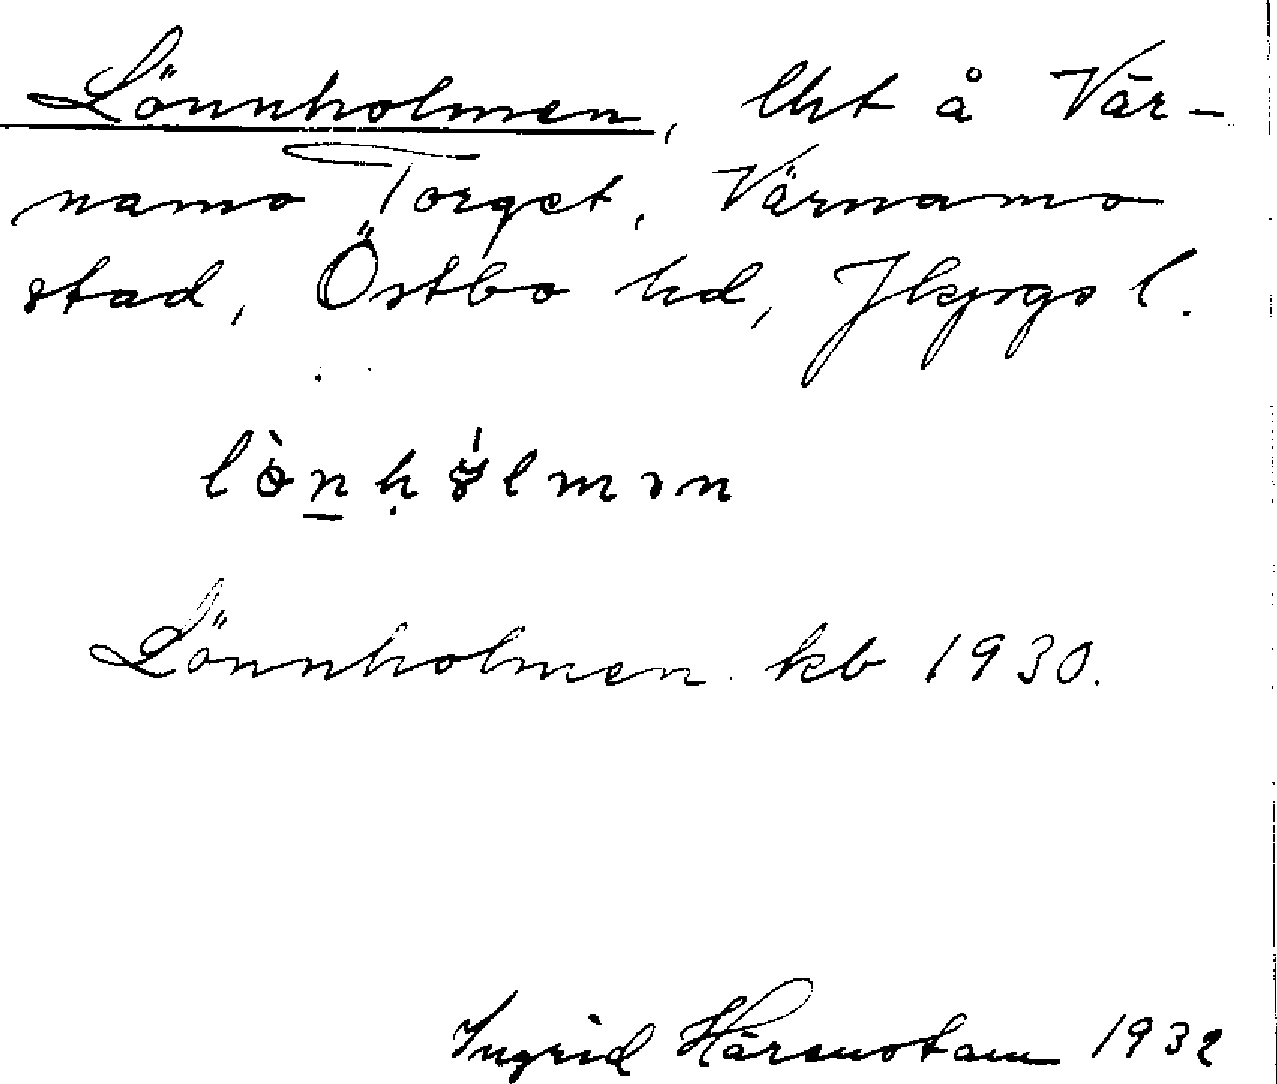 Lönnholmen, lht å Vär-
namo Torget, Värnamo
stad, Östbo hd, Jkpgs l.
Lönnholmen kb 1930.
Ingrid 1932